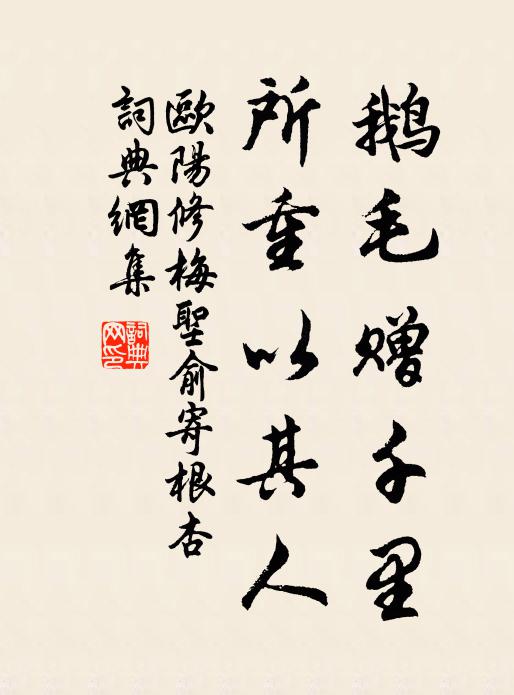 鹅毛赠千里
所重以其人
歐陽修梅聖俞寄根杏
詞典網集
詞典网印